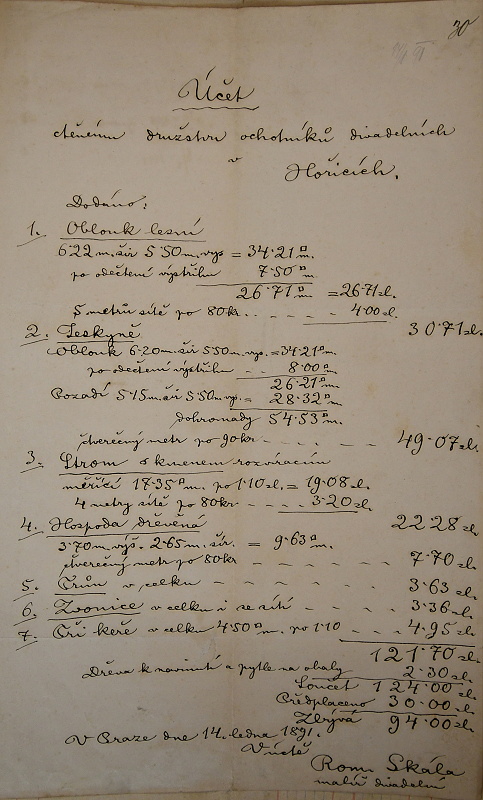 30
Účet
ctěnému družstvu ochotníků divadelních
v
Hořicích.
Dodáno:
1. Oblouk lesní
6·22 m. šir 5·50 m. vys = 34·21 □m.
po odečtení výstřihu 7·50 □m.
26·71 □m. = 26·71 zl.
5 metrů sítě po 80 kr. . . . . 4·00 zl.
30·71 zl.
2. Jeskyně
Oblouk 6·20 m. šir 5·50 m. vys. = 34·21 □m.
po odečtení výstřihu . . 8·00 □m.
26·21 □m.
Pozadí 5·15 m. šir 5·50 m. vys. = 28·32 □m.
dohromady 54·53 □m.
čtverečný metr po 90 kr. - - - - - 49·07 zl.
3. Strom s kmenem rozvíracím
měřící 17·35 □m. po 1·10 zl. = 19·08 zl.
4 metry sítě po 80 kr - - - - 3·20 zl.
22·28 zl.
4. Hospoda dřevěná
3·70 m. výš. 2·65 m. šir. = 9·63 □m.
čtverečný metr po 80 kr - - - - - 7·70 zl.
5. Trůn v celku - - - - - - 3·63 zl.
6. Zvonice v celku i se sítí - - - . . 3·36 zl.
7. Tři keře v celku 4·50 □m. po 1·10 . . . 4·95 zl.
121·70 zl.
Dřeva k navinutí a pytle na obaly 2·30 zl.
Součet 124·00 zl.
Předplaceno 30·00 zl.
Zbývá 94·00 zl.
V Praze dne 14. ledna 1891.
V úctě
Rom. Skála
malíř divadelní